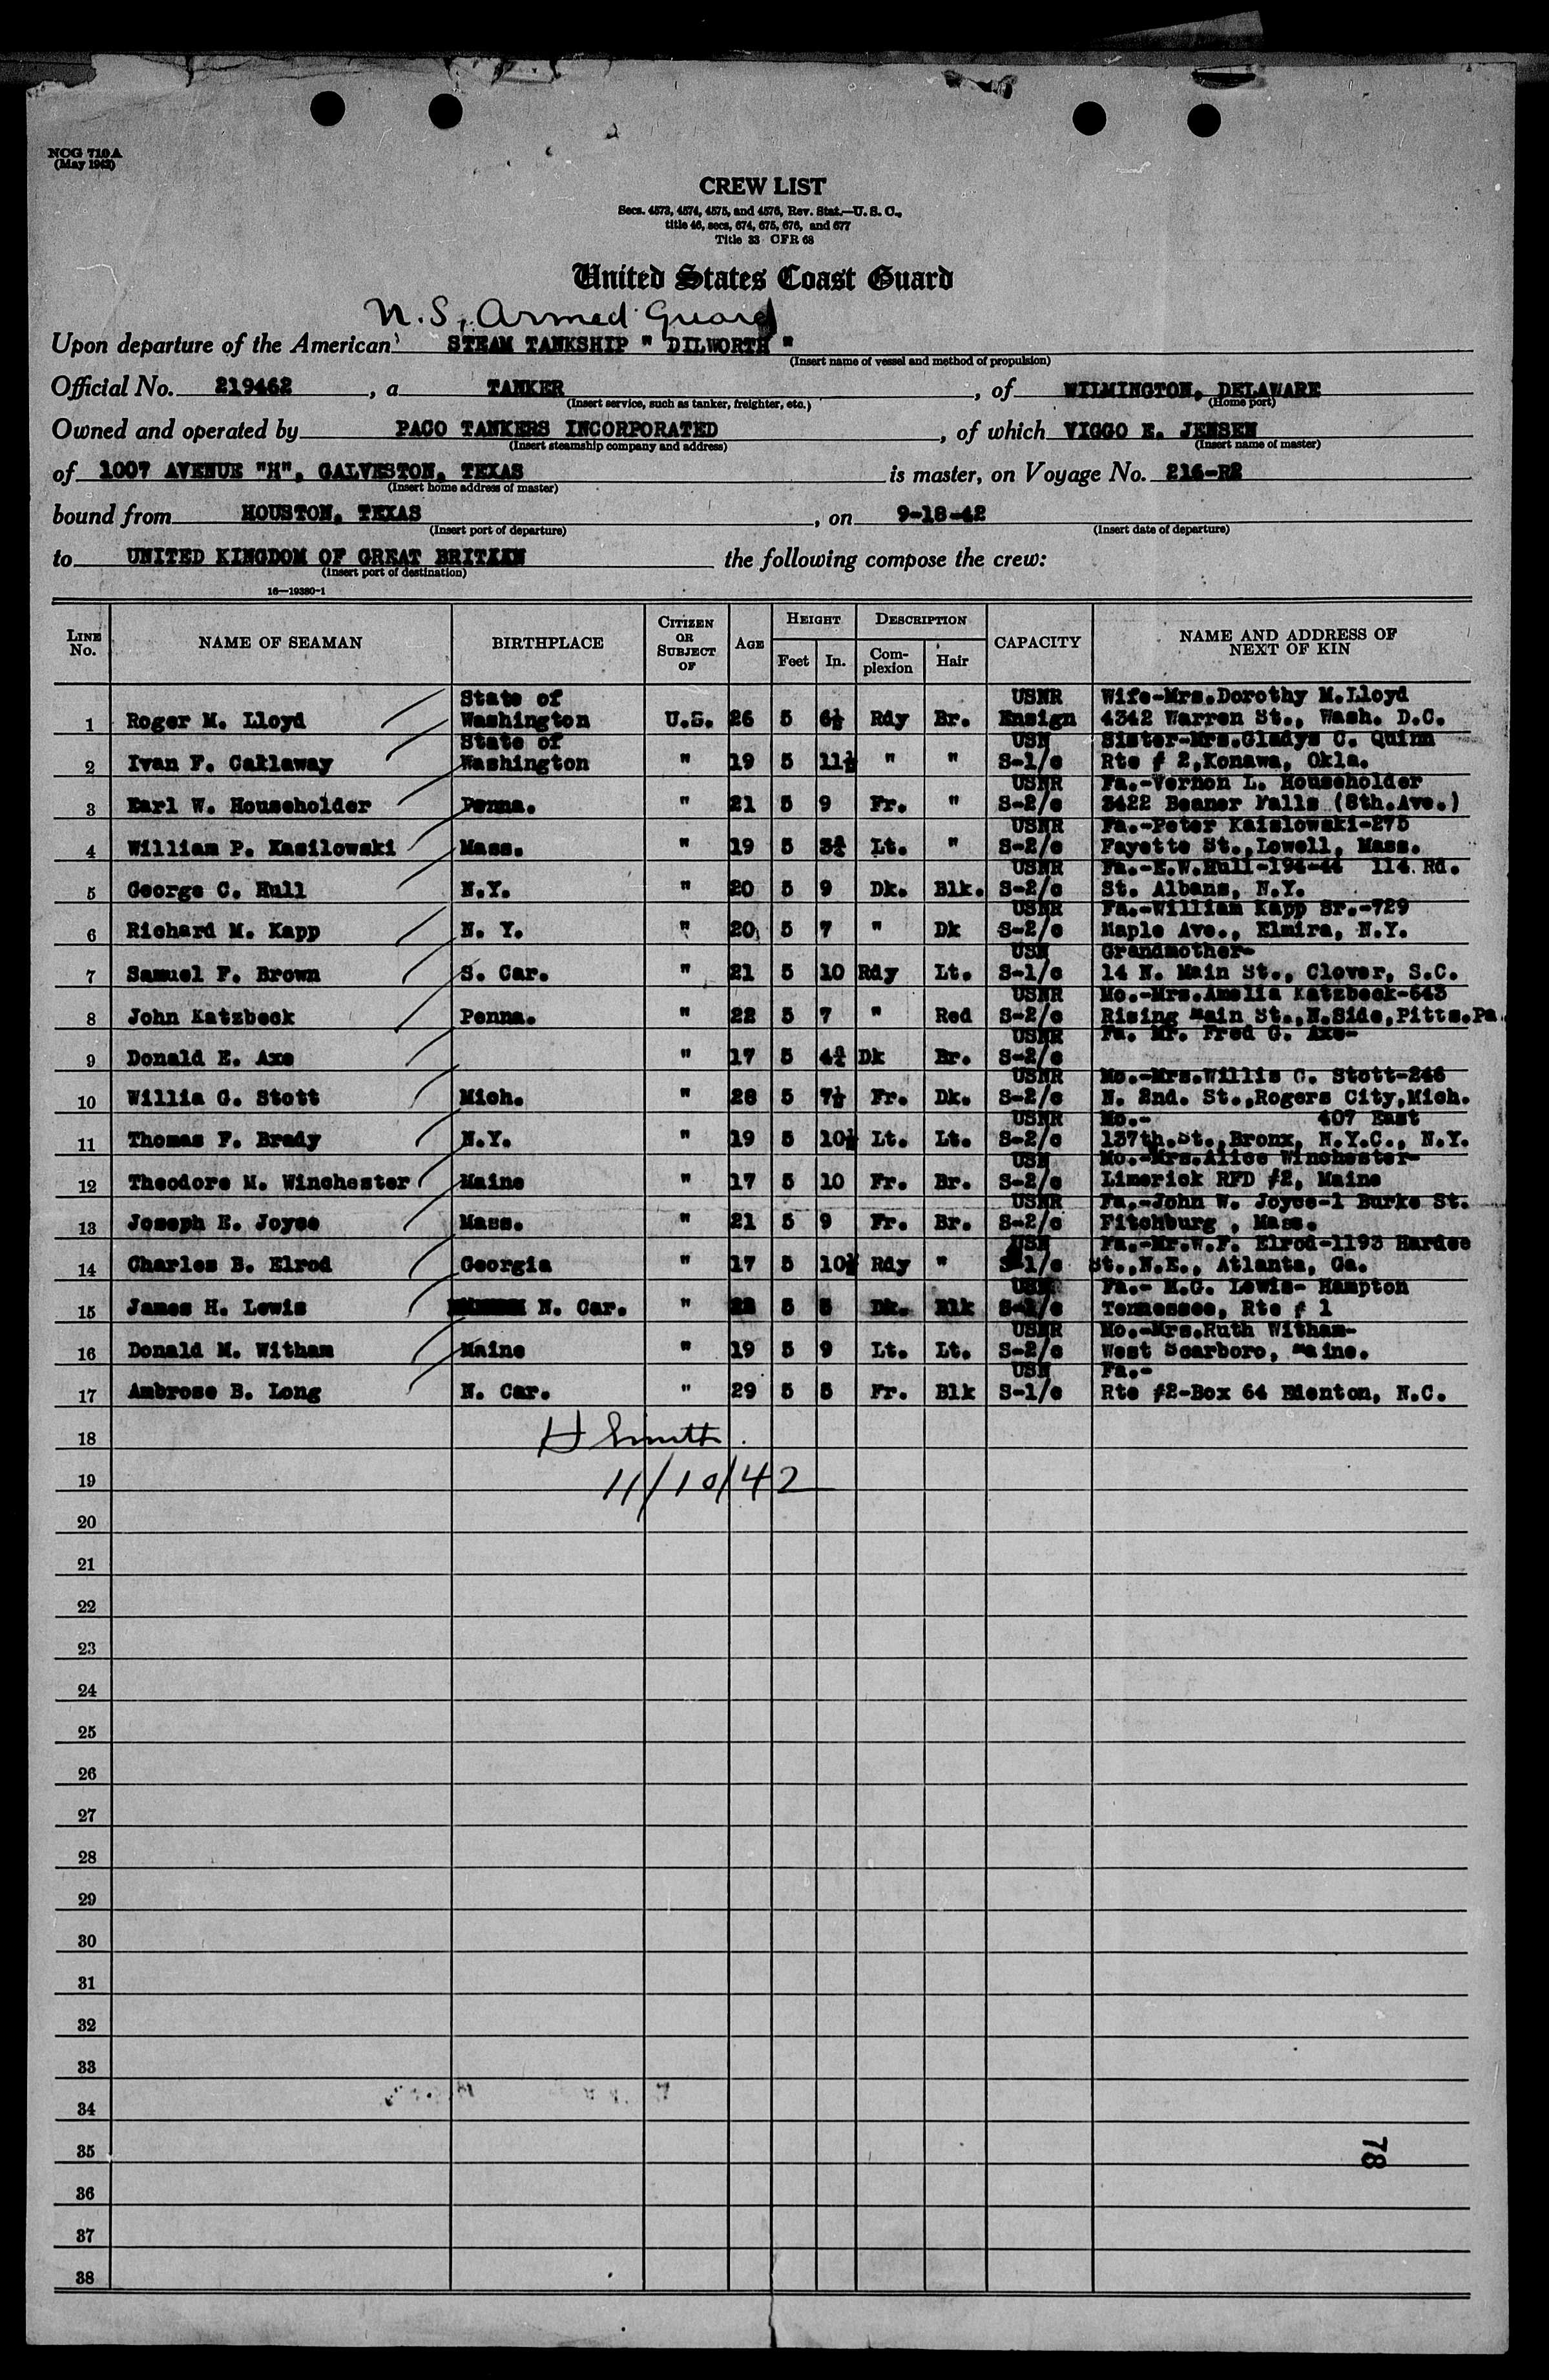 NCG 710 A
(May 1942)
CREW LIST
Secs. 4573, 4574, 4575, and 4576, Rev. Stat.—U. S. C.,
title 46, secs, 674, 675, 676, and 677
Title 33 CFR 68
United States Coast Guard
Armed Guard
Upon departure of the American STEAM TANKSHIP " DILWORTH "
(Insert name of vessel and method of propulsion)
Official No. 219462, a TANKER, of WILMINGTON, DELAWARE
(Insert service, such as tanker, freighter, etc.) (Home port)
Owned and operated by PACO TANKERS INCORPORATED, of which VIGGO E. JENSEN
(Insert steamship company and address) (Insert name of master)
of 1007 AVENUE "H", GALVESTON, TEXAS is master, on Voyage No. 216-R2
(Insert home address of master)
bound from HOUSTON, TEXAS, on 9-18-42
(Insert port of departure) (Insert date of departure)
to UNITED KINGDOM OF GREAT the following compose the crew:
(Insert port of destination)
16—19380-1
LINE No. NAME OF SEAMAN BIRTHPLACE CITIZEN OR SUBJECT OF AGE HEIGHT Feet In. DESCRIPTION Complexion Hair CAPACITY NAME AND ADDRESS OF NEXT OF KIN
State of USNR Wife-Mrs.Dorothy M.Lloyd
1 Roger M. Lloyd Washington U.S. 26 5 6½ Rdy Br. Ensign 4342 Warren St., Wash. D.C.
State of USN Sister-Mrs.Gladys C. Quinn
2 Ivan F. Callaway Washington " 19 5 11½ " " S-1/c Rte # 2,Konawa, Okla.
USNR Fa.-Vernon L. Householder
3 Earl W. Householder Penna. " 21 5 9 Fr. " S-2/c 3422 Beaner Falls (8th.Ave.)
USNR Fa.-Peter Kaislowski-275
4 William P. Kasilowski Mass. " 19 5 3¾ Lt. " S-2/c Fayette St.,Lowell, Mass.
USNR Fa.-E.W.Hull-194-44 114 Rd.
5 George C. Hull N.Y. " 20 5 9 Dk. Blk. S-2/c St. Albans, N.Y.
USNR Fa.-William Kapp Sr.-729
6 Richard M. Kapp N. Y. " 20 5 7 " Dk S-2/c Maple Ave., Elmira, N.Y.
USN Grandmother-
7 Samuel F. Brown S. Car. " 21 5 10 Rdy Lt. S-1/c 14 N. Main St., Clover, S.C.
USNR Mo.-Mrs.Amelia Katzbeck-543
8 John Katzbeck Penna. " 22 5 7 " Red S-2/c Rising Main St.,N.Side,Pitts.Pa.
USNR Fa. Mr. Fred G. Axe-
9 Donald E. Axe " 17 5 4¾ Dk Br. S-2/c
USNR Mo.-Mrs.Willis C. Stott-246
10 Willis G. Stott Mich. " 28 5 7½ Fr. Dk. S-2/c N. 2nd. St.,Rogers City,Mich.
USNR Mo.- 407 East
11 Thomas F. Brady N.Y. " 19 5 10½ Lt. Lt. S-2/c 137th.St.,Bronx, N.Y.C., N.Y.
USN Mo.-Mrs.Alice Winchester-
12 Theodore M. Winchester Maine " 17 5 10 Fr. Br. S-2/c Limerick RFD #2, Maine
USNR Fa.-John W. Joyce-1 Burke St.
13 Joseph E. Joyce Mass. " 21 5 9 Fr. Br. S-2/c Fitchburg , Mass.
USN Fa.-Mr.W.F. Elrod-1193 Hardee
14 Charles B. Elrod Georgia " 17 5 10½ Rdy " S-1/c St.,N.E., Atlanta, Ga.
Fa.- M.G. Lewis- Hampton
15 James H. Lewis N. Car. " 22 5 5 Dk. Blk Tennessee, Rte # 1
USNR Mo.-Mrs.Ruth Witham-
16 Donald M. Witham Maine " 19 5 9 Lt. Lt. S-2/c West Scarboro, Maine.
USN Fa.-
17 Ambrose B. Long N. Car. " 29 5 5 Fr. Blk S-1/c Rte #2-Box 64 Edenton, N.C.
18 H Smith
19 11/10/42
20
21
22
23
24
25
26
27
28
29
30
31
32
33
34
35
36
37
38
78